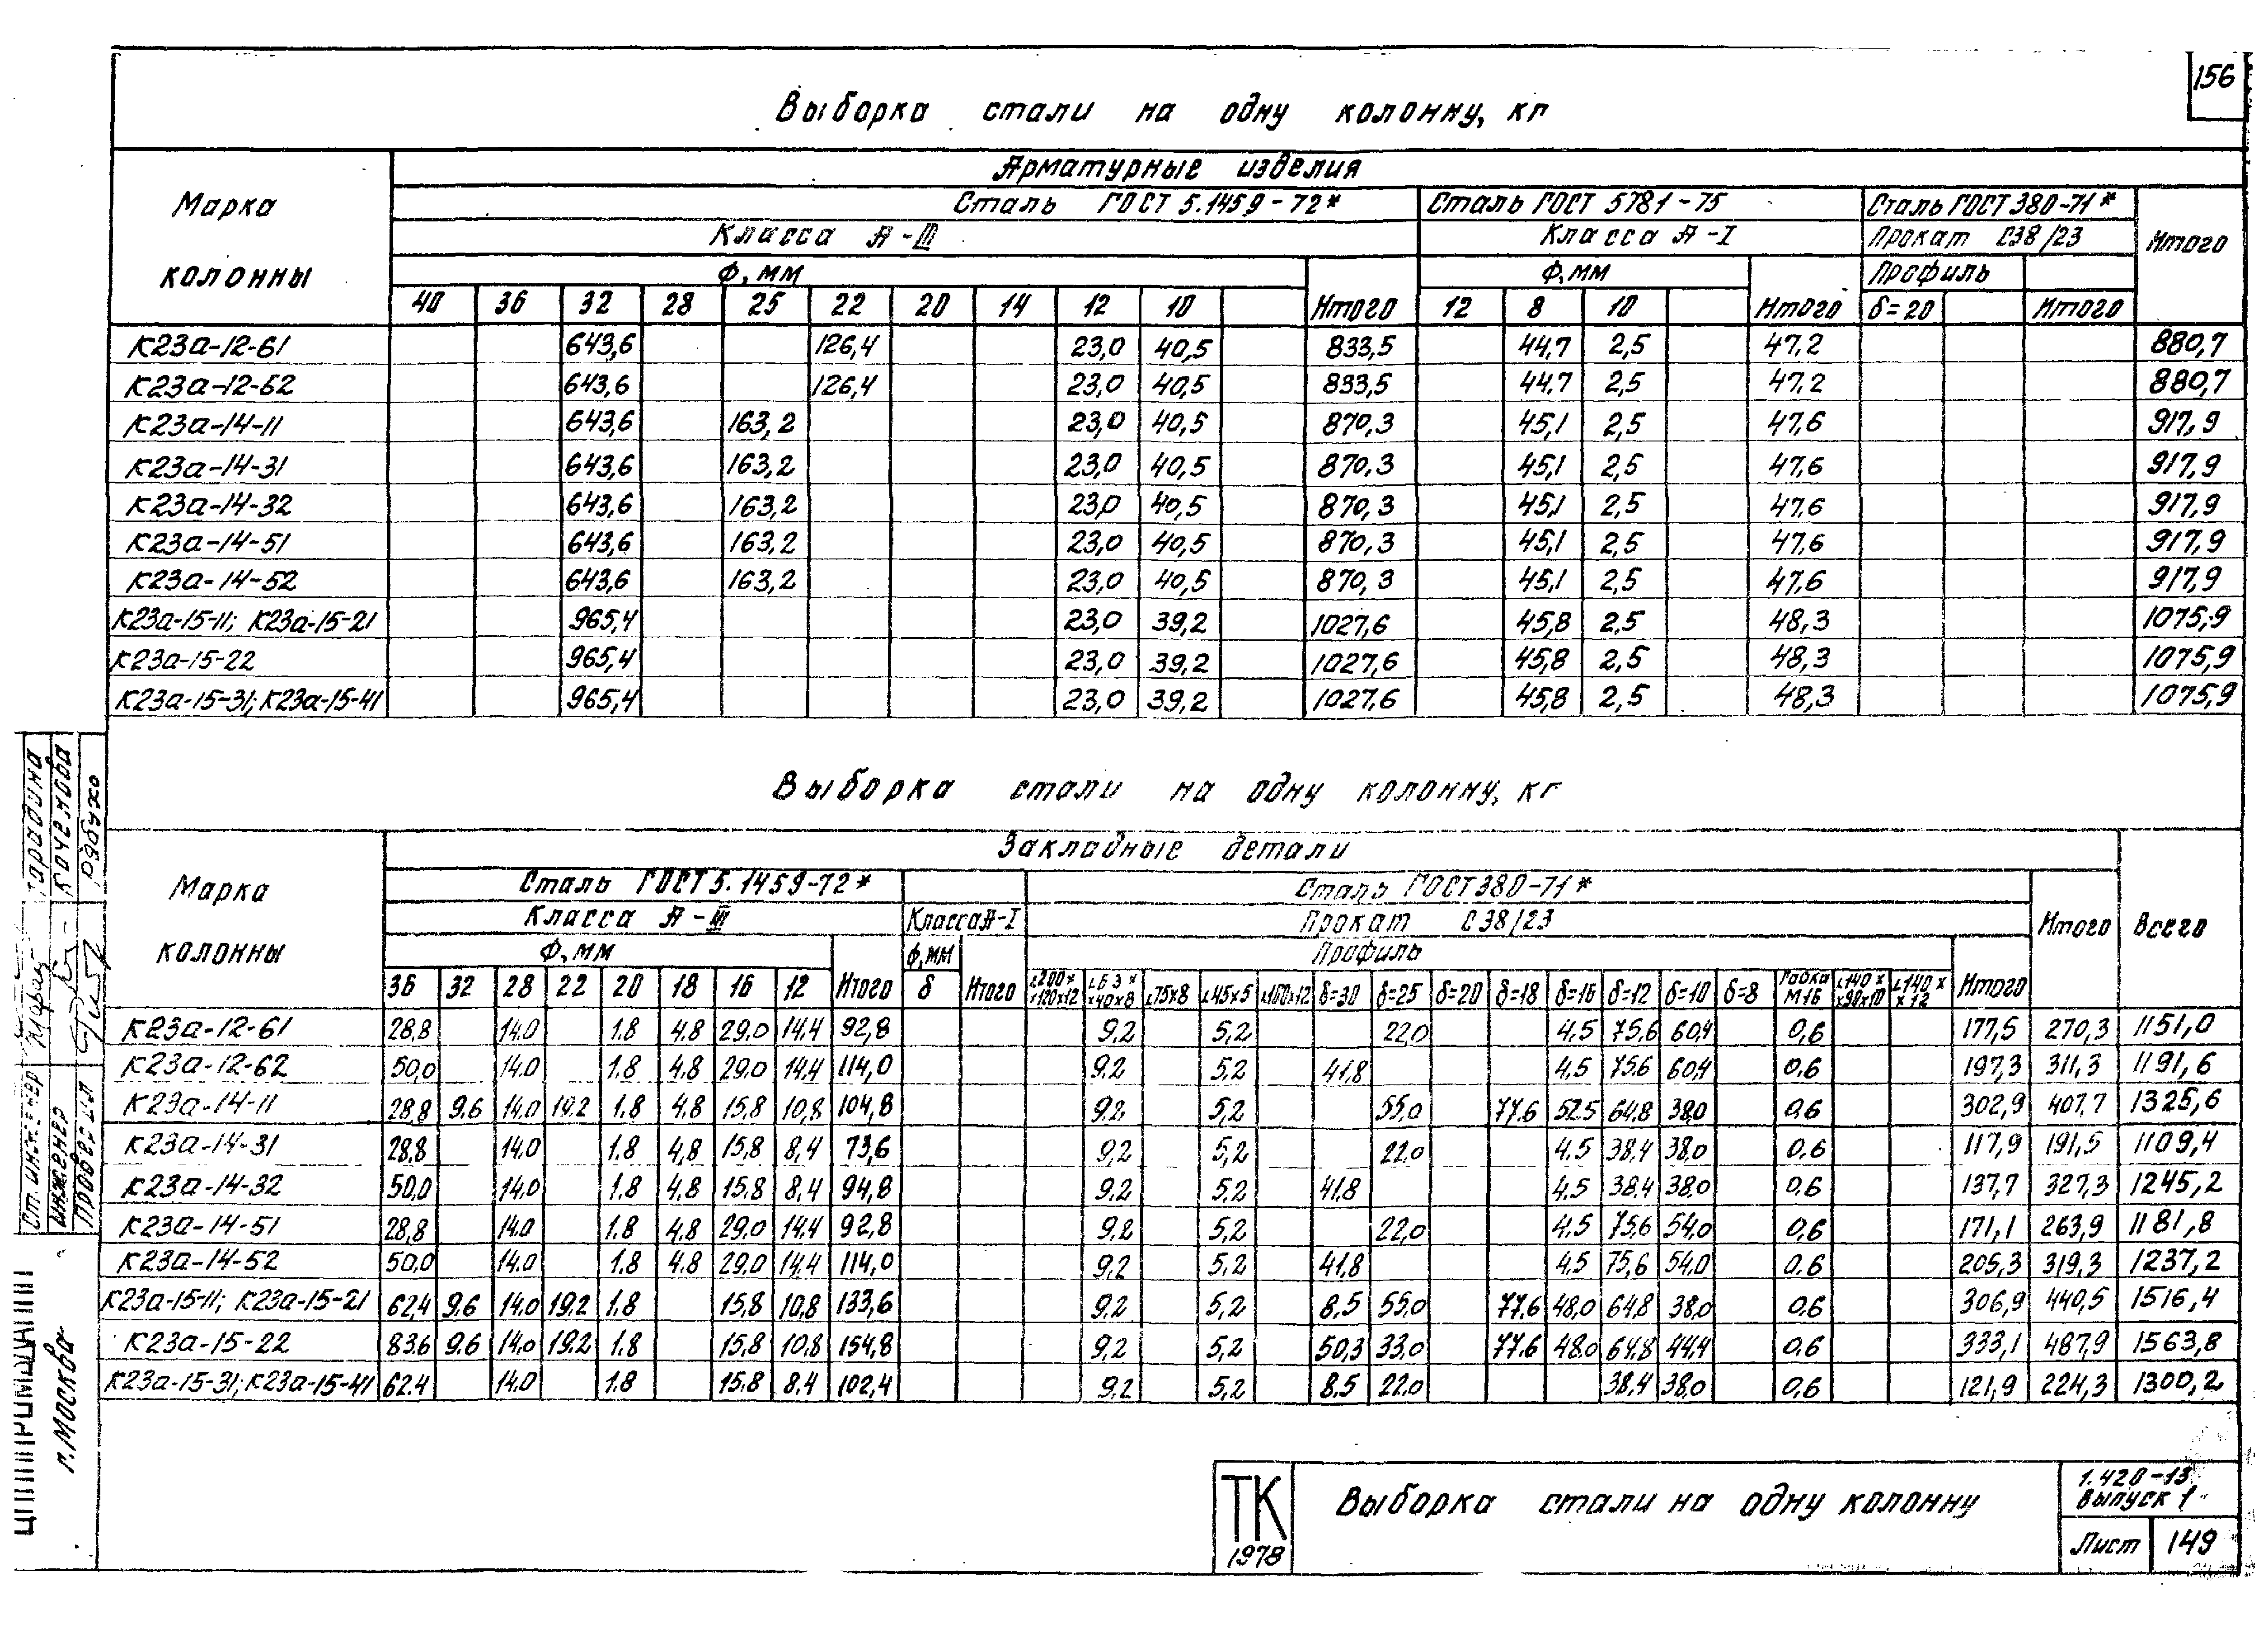 156
Выборка стали на одну колонну, кг
Марка колонны
Арматурные изделия
Сталь ГОСТ 5.1459-72* Сталь ГОСТ 5781-75 Сталь ГОСТ 380-71* Итого
Класса А-III Класса А-I Прокат С38/23
Ф, мм Итого Ф, мм Итого Профиль Итого
40 36 32 28 25 22 20 14 12 10 12 8 10 δ=20
К23а-12-61 643,6 126,4 23,0 40,5 833,5 44,7 2,5 47,2 880,7
К23а-12-62 643,6 126,4 23,0 40,5 833,5 44,7 2,5 47,2 880,7
К23а-14-11 643,6 163,2 23,0 40,5 870,3 45,1 2,5 47,6 917,9
К23а-14-31 643,6 163,2 23,0 40,5 870,3 45,1 2,5 47,6 917,9
К23а-14-32 643,6 163,2 23,0 40,5 870,3 45,1 2,5 47,6 917,9
К23а-14-51 643,6 163,2 23,0 40,5 870,3 45,1 2,5 47,6 917,9
К23а-14-52 643,6 163,2 23,0 40,5 870,3 45,1 2,5 47,6 917,9
К23а-15-11; К23а-15-21 965,4 23,0 39,2 1027,6 45,8 2,5 48,3 1075,9
К23а-15-22 965,4 23,0 39,2 1027,6 45,8 2,5 48,3 1075,9
К23а-15-31; К23а-15-41 965,4 23,0 39,2 1027,6 45,8 2,5 48,3 1075,9
Выборка стали на одну колонну, кг
Марка колонны
Закладные детали Всего
Сталь ГОСТ 5.1459-72* Сталь ГОСТ 380-71* Итого
Класса А-III Класса А-I Прокат С38/23
Ф, мм Итого Ф, мм Итого Профиль Итого
36 32 28 22 20 18 16 12 δ ∟200××120×12 ∟63××40×8 ∟75×8 ∟45×5 ∟100×12 δ=30 δ=25 δ=20 δ=18 δ=16 δ=12 δ=10 δ=8 Гайка М16 ∟140××90×10 ∟140××12
К23а-12-61 28.8 14.0 1.8 4.8 29.0 14.4 92,8 9.2 5,2 22,0 4.5 75.6 60,4 0,6 177,5 270,3 1151,0
К23а-12-62 50,0 14.0 1.8 4.8 29.0 14.4 114,0 9.2 5,2 41,8 4.5 75.6 60,4 0.6 197,3 311,3 1191,6
К23а-14-11 28,8 9.6 14.0 19.2 1.8 4.8 15.8 10,8 104,8 9.2 5,2 55,0 77.6 52.5 64,8 38,0 0,6 302,9 407,7 1325,6
К23а-14-31 28.8 14.0 1.8 4,8 15,8 8,4 73,6 9,2 5,2 22,0 4.5 38,4 38,0 0,6 117,9 191,5 1109,4
К23а-14-32 50,0 14.0 1.8 4.8 15.8 8,4 94,8 9.2 5,2 41,8 4.5 38,4 38,0 0,6 137,7 327,3 1245,2
К23а-14-51 28,8 14.0 1.8 4,8 29.0 14.4 92,8 9.2 5,2 22,0 4.5 75,6 54,0 0,6 171,1 263,9 1181,8
К23а-14-52 50,0 14.0 1.8 4.8 29.0 14.4 114,0 9.2 5,2 41,8 4.5 75,6 54,0 0.6 205,3 319,3 1237,2
К23а-15-11; К23а-15-21 62,4 9.6 14.0 19.2 1.8 15.8 10,8 133,6 9.2 5,2 8.5 55,0 77.6 48,0 64,8 38,0 0,6 306,9 440,5 1516,4
К23а-15-22 83.6 9.6 14.0 19.2 1.8 15.8 10,8 154,8 9,2 5,2 50,3 33,0 77.6 48.0 64.8 44,4 0,6 333,1 487,9 1563,8
К23а-15-31; К23а-15-41 62.4 14.0 1.8 15.8 8,4 102,4 9.2 5,2 8.5 22,0 38,4 38,0 0,6 121,9 224,3 1300,2
Ст. инженер
инженер Кочемова
Рябухо
г. Москва
ТК
1978
Выборка стали на одну колонну
1.420-13
Выпуск 1
Лист 149